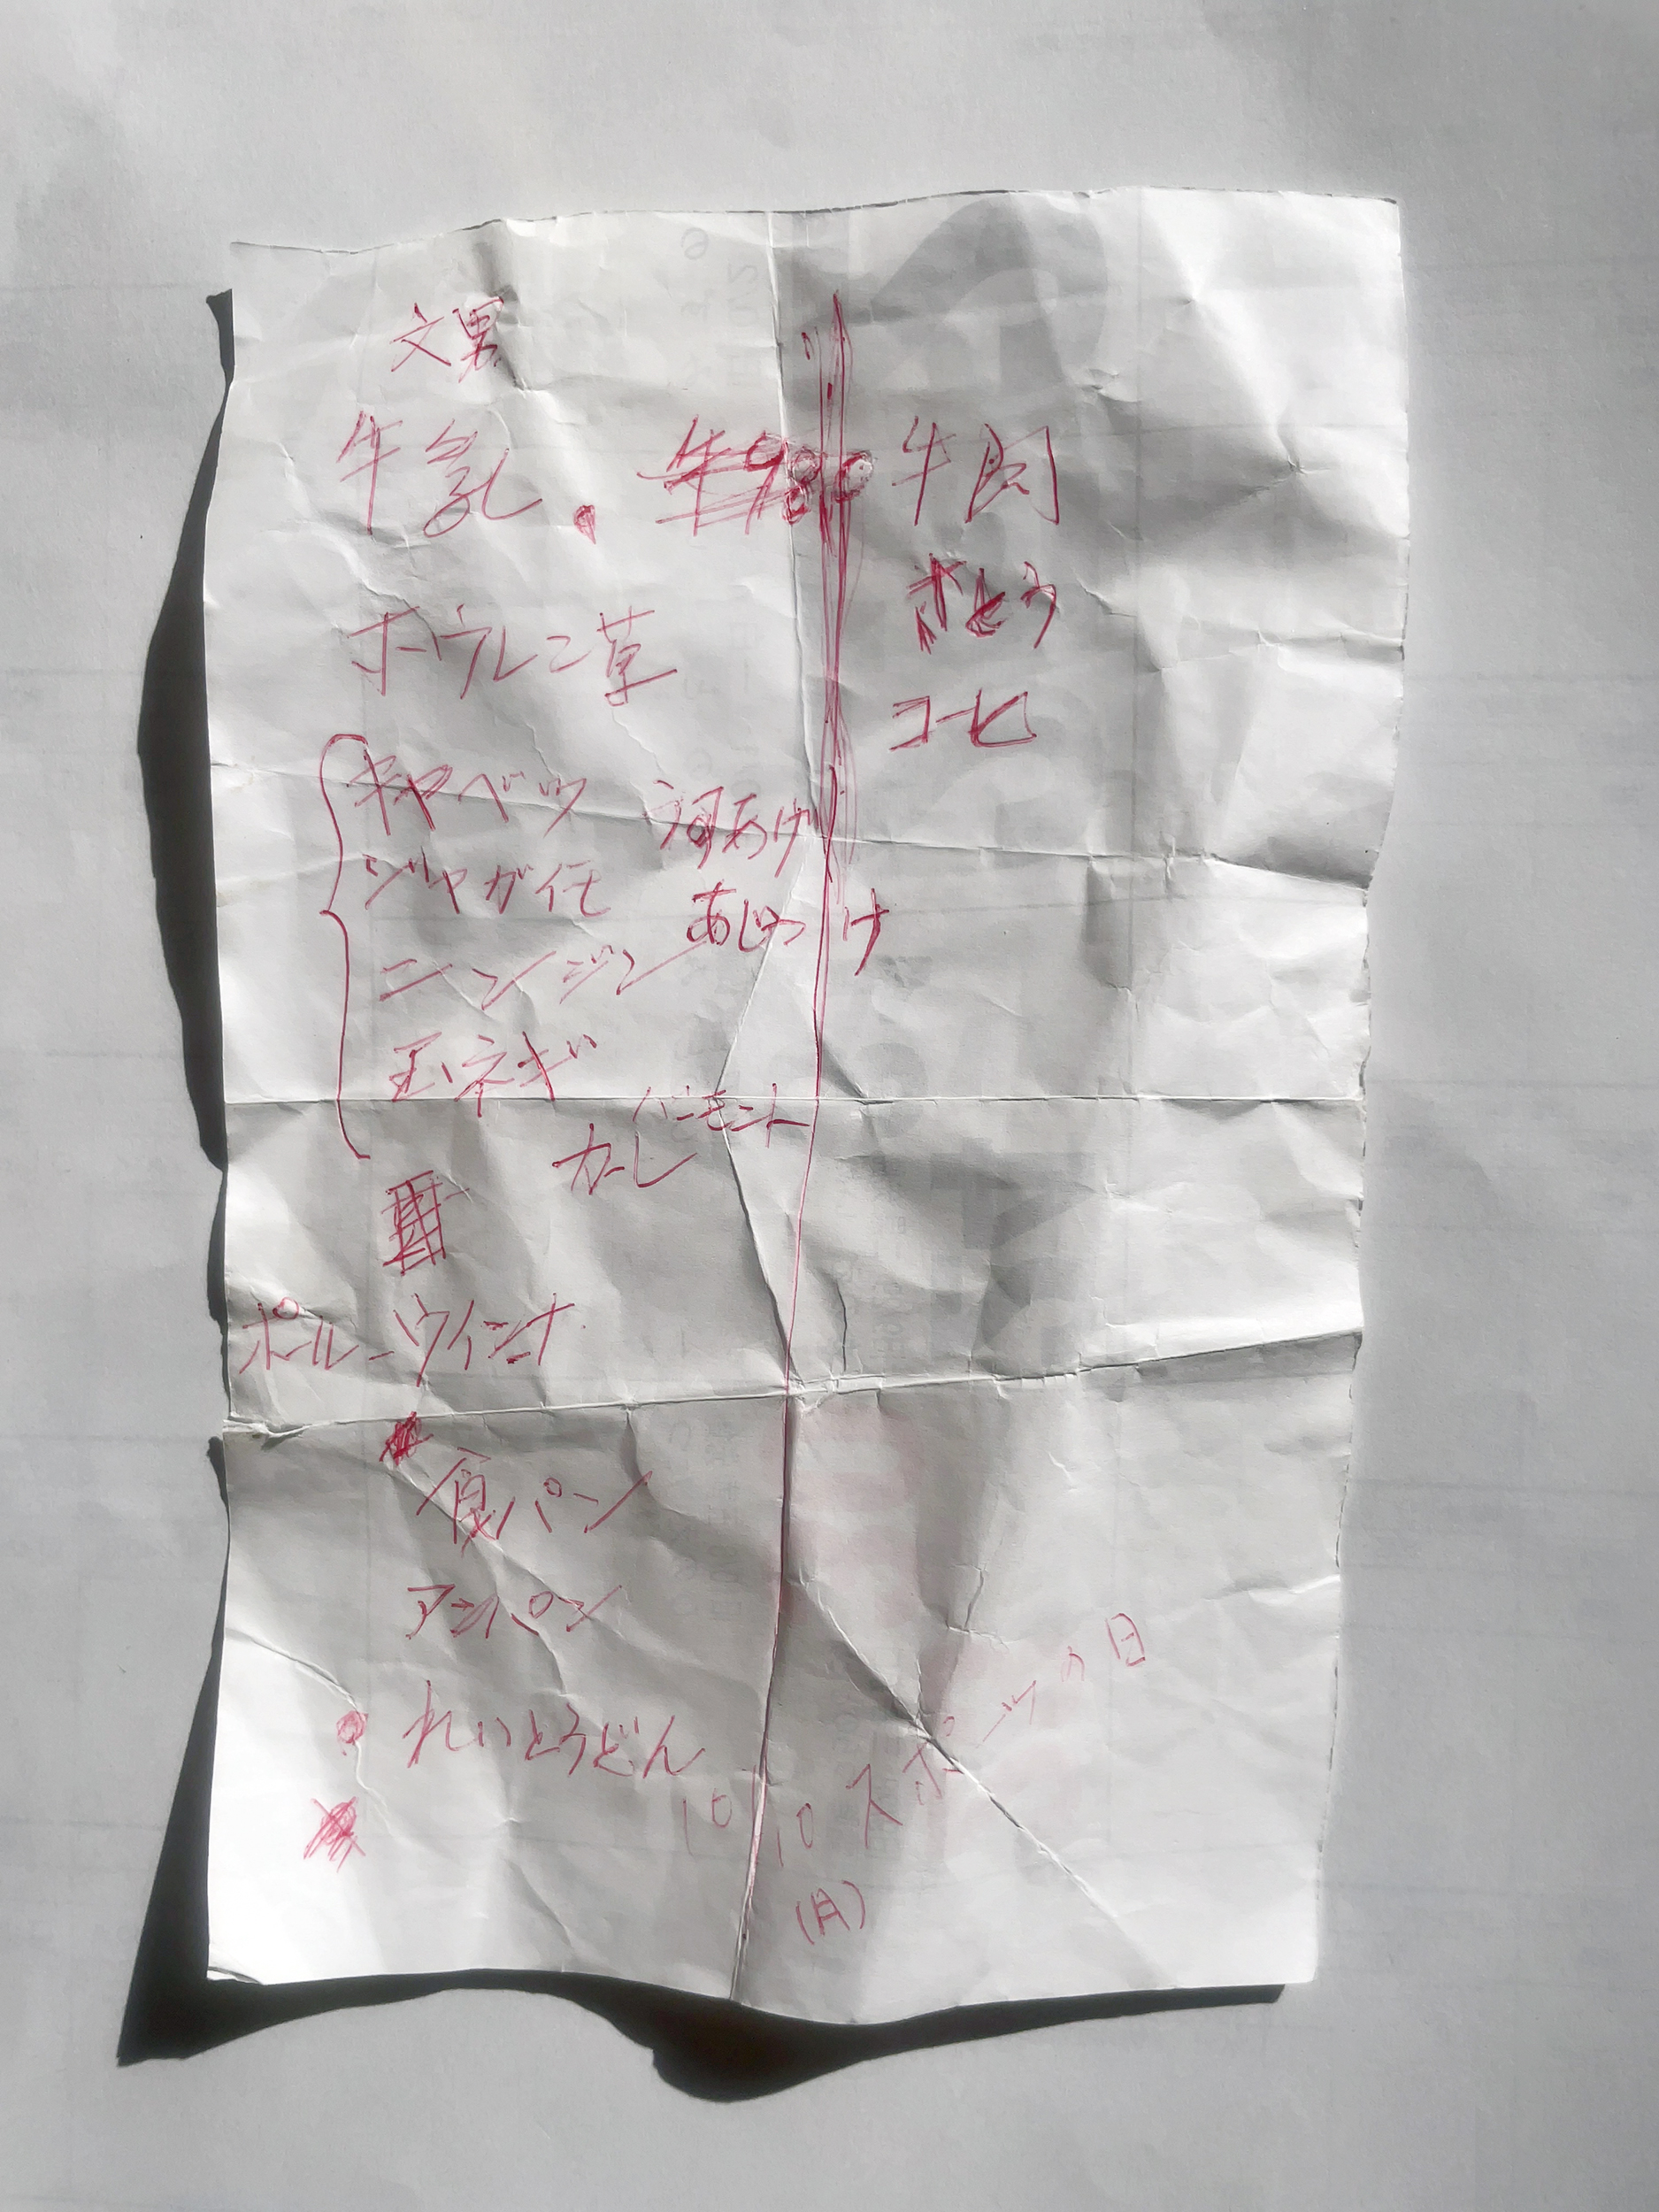 文男
牛乳
ホウレン草
キャベツ
ジャガイモ
ニンジン
玉ネギ
あげ
あじつけ
バーモント
カーレ
ポールウインナ
食パン
アンパン
れいとうどん
牛肉
さとう
コーヒ
10 10 スポーツの日
(月)